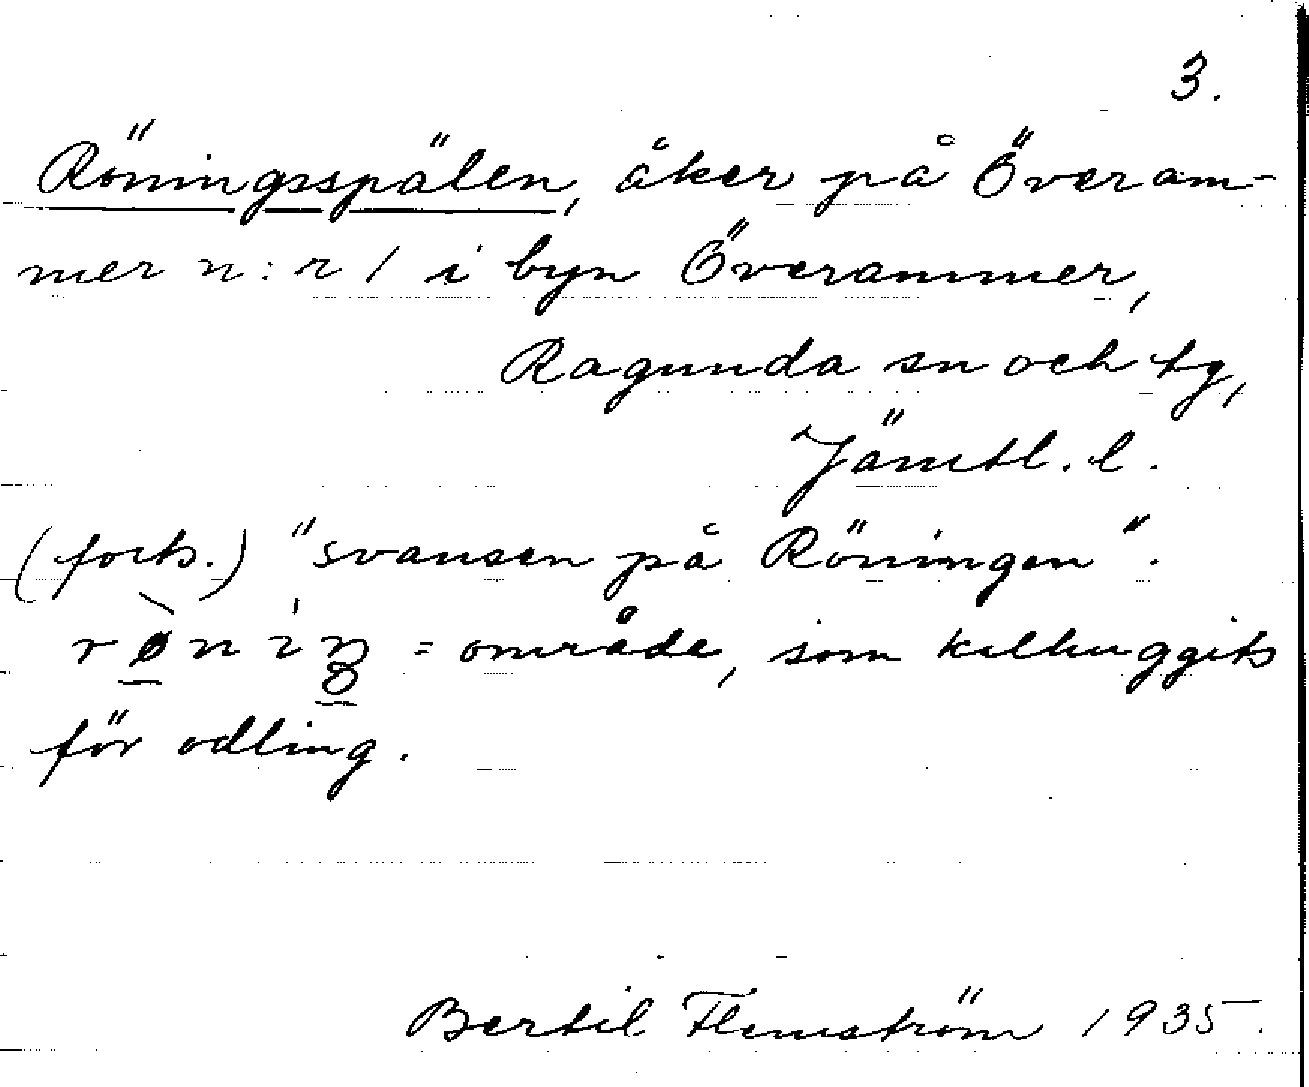 3.
Röningsspälen, åker på Överam-
mer n:r 1 i byn Överammer,
Ragunda sn och tg,
Jämtl. l.
(forts.) "svansen på Röningen".
rø̀niŋ = område, som kalhuggits
för odling.
Bertil Flemström 1935.